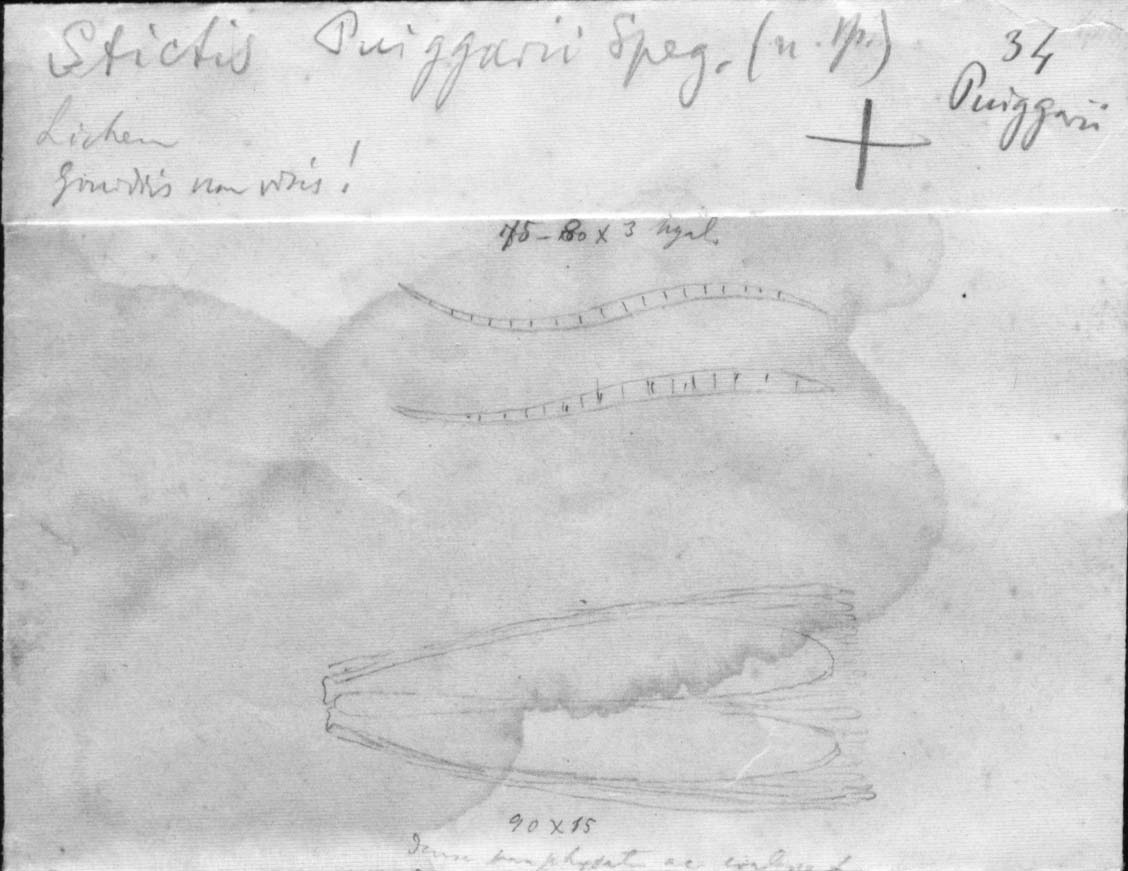 Stictis Puiggarii Speg. (n. sp.)
34
Puiggarii
Lichen
Gonidiis non visis!
75-80 x 3 hyal.
90 x 15
Dense paraphysati ac